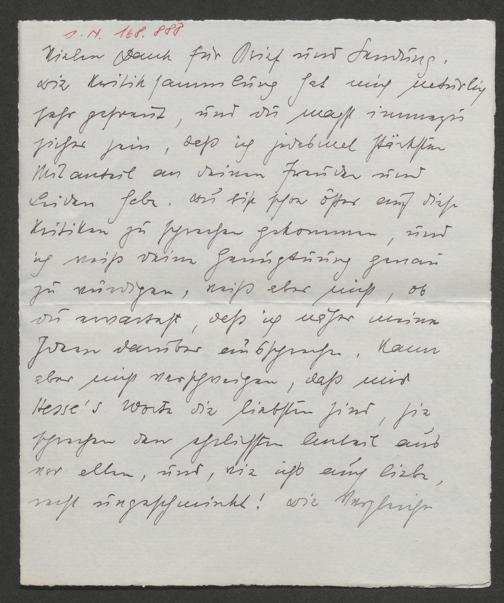 I. N. 168.888
Vielen Dank für Brief und Sendung.
Die Kritiksammlung hat mich natürlich
sehr gefreut, und du magst immerzu
sicher sein, daß ich jedesmal stärksten
Mitanteil an deinen Freuden und
Leiden habe. Du bist schon öfter auf diese
Kritiken zu sprechen gekommen, und
ich weiß deine Genugtuung genau
zu würdigen, weiß aber nicht, ob
du erwartest, daß ich näher meine
Ideen darüber ausspreche. Kann
aber nicht verschweigen, daß mir
Hesse's Worte die liebsten sind, sie
sprechen den ehrlichsten Anteil aus
vor allen, und, wie ich's auch liebe,
recht ungeschminkt! Die Vergleiche